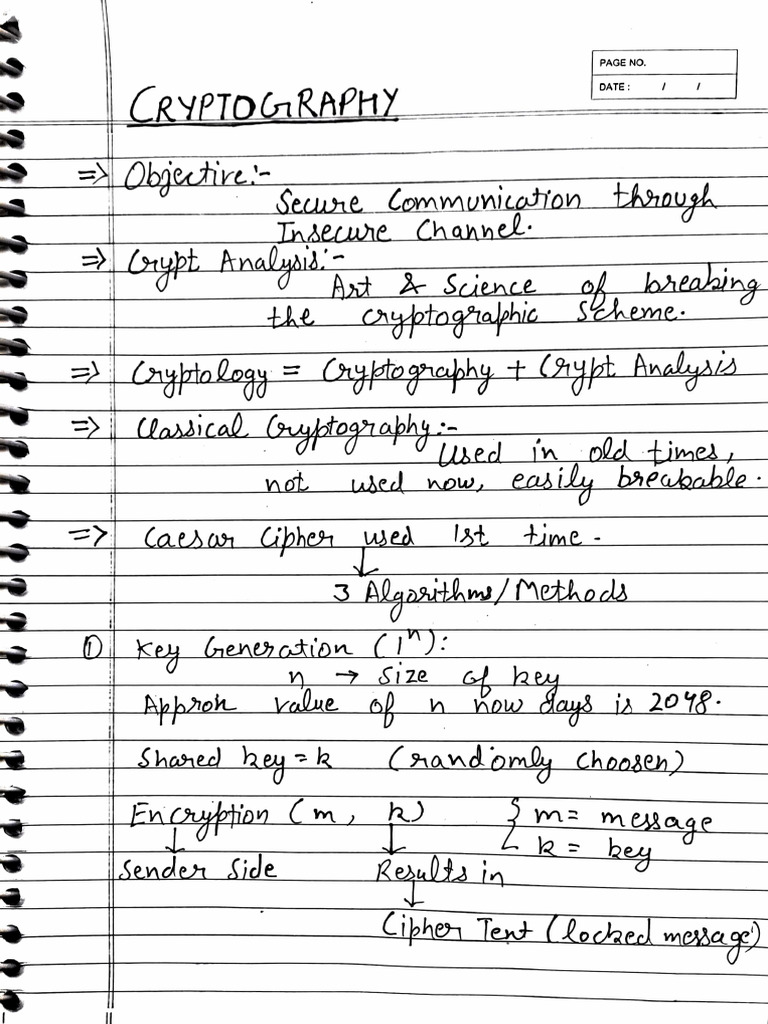 PAGE NO.
DATE : / /
CRYPTOGRAPHY
=> Objective:-
Secure Communication through
Insecure Channel.
=> Crypt Analysis:-
Art & Science of breaking
the cryptographic Scheme.
=> Cryptology = Cryptography + Crypt Analysis
=> Classical Cryptography:-
Used in old times,
not used now, easily breakable.
=> Caesar Cipher used 1st time.
↓
3 Algorithms/Methods
① Key Generation (1ⁿ):
n → Size of key
Approx value of n now days is 2048.
Shared key = k (randomly choosen)
Encryption (m, k) { m = message
k = key
↓ ↓
Sender Side Results in
↓
Cipher Text (locked message)